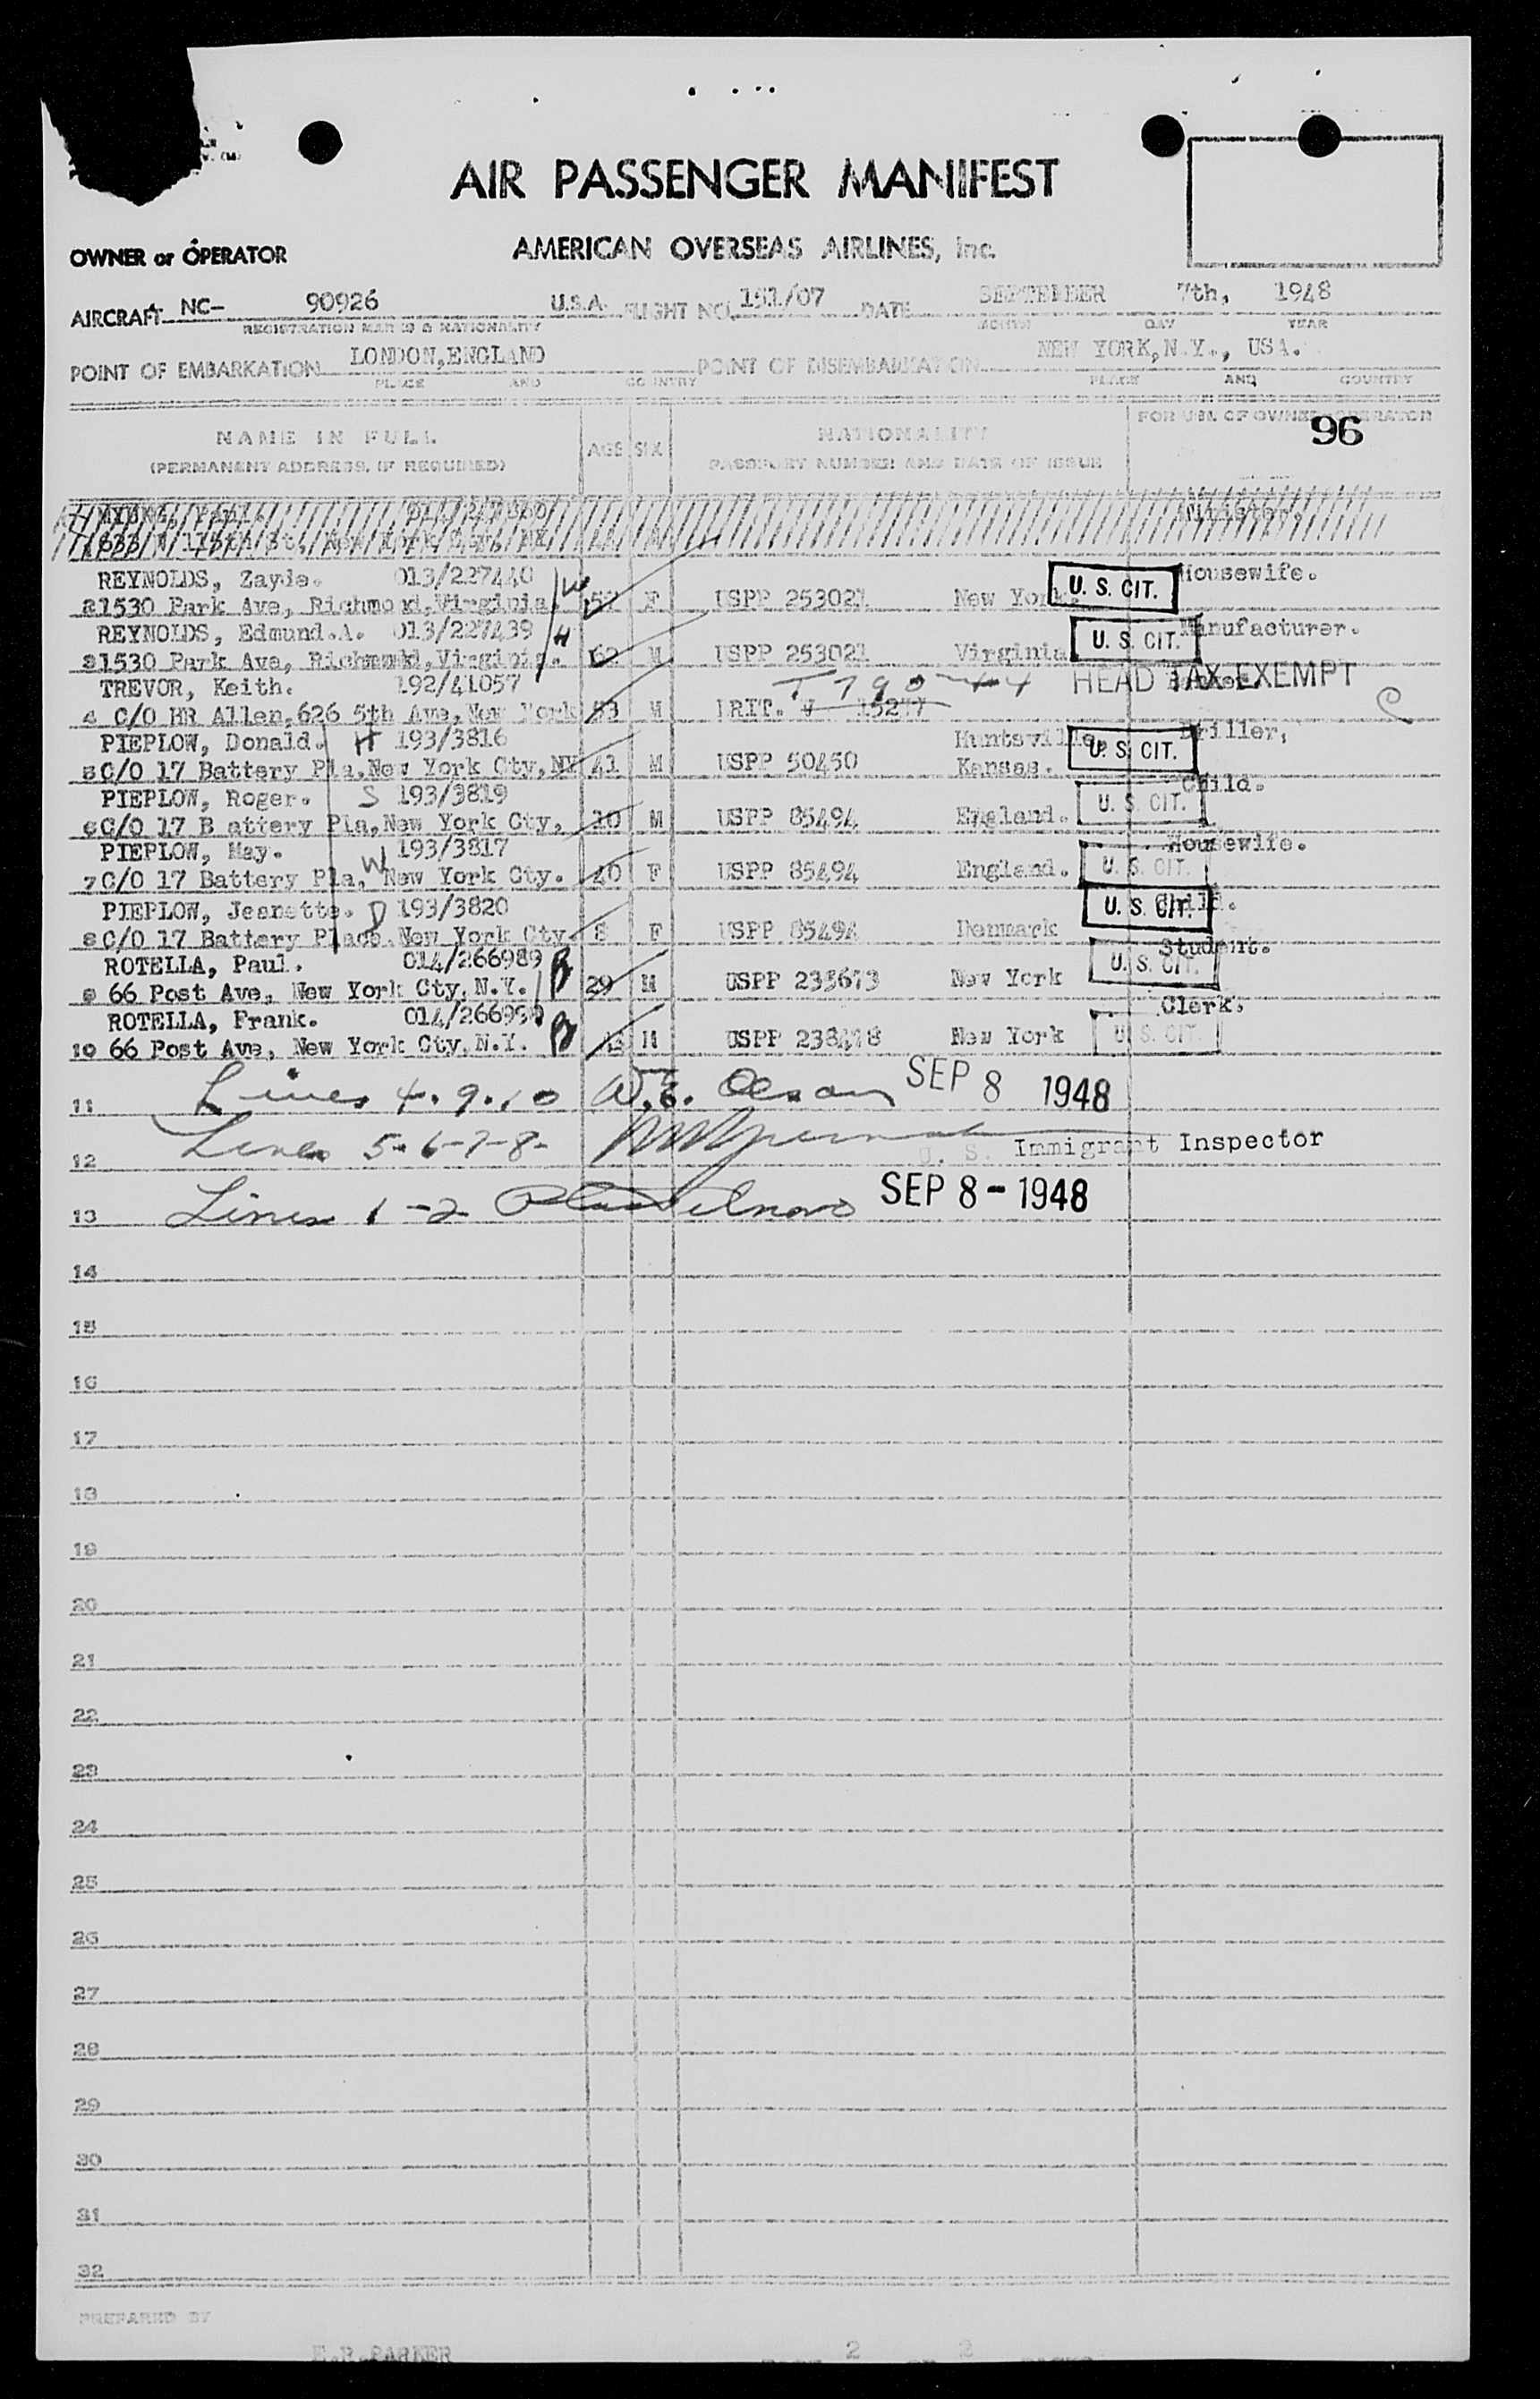 AIR PASSENGER MANIFEST
OWNER or OPERATOR AMERICAN OVERSEAS AIRLINES, Inc.
AIRCRAFT NC- 90926 U.S.A. FLIGHT NO. 151/07 DATE SEPTEMBER 7th, 1948
REGISTRATION MARKS & NATIONALITY MONTH DAY YEAR
POINT OF EMBARKATION LONDON,ENGLAND POINT OF DISEMBARKATION NEW YORK,N.Y., USA.
PLACE AND COUNTRY PLACE AND COUNTRY
NAME IN FULL AGE SEX NATIONALITY FOR USE OF OWNER OPERATOR
(PERMANENT ADDRESS, IF REQUIRED) PASSPORT NUMBER AND DATE OF ISSUE
96
REYNOLDS, Zayde. 013/227440 W U. S. CIT. Housewife.
2 1530 Park Ave, Richmond,Virginia. F USPP 253021 New York.
REYNOLDS, Edmund.A. 013/227439 H U. S. CIT. Manufacturer.
3 1530 Park Ave, Richmond,Virginia. 62 M USPP 253021 Virginia
TREVOR, Keith. 192/41057 T 790-44 HEAD TAX EXEMPT
4 C/O HR Allen,626 5th Ave,New York 53 M BRIT. 15277
PIEPLOW, Donald. H 193/3816 Huntsville U. S. CIT. Driller,
5 C/O 17 Battery Pla,New York Cty,NY 41 M USPP 50450 Kansas.
PIEPLOW, Roger. S 193/3819 U. S. CIT. Child.
6 C/O 17 B attery Pla,New York Cty, 10 M USPP 85494 England.
PIEPLOW, May. W 193/3817 U. S. CIT. Housewife.
7 C/O 17 Battery Pla, New York Cty. 40 F USPP 85494 England.
PIEPLOW, Jeanette. D 193/3820 U. S. CIT. Child.
8 C/O 17 Battery Place.New York Cty. 8 F USPP 85494 Denmark
ROTELLA, Paul. 014/266989 B U. S. CIT. Student.
9 66 Post Ave, New York Cty, N.Y. 29 M USPP 235673 New York
ROTELLA, Frank. 014/266990 B U. S. CIT. Clerk.
10 66 Post Ave, New York Cty, N.Y. M USPP 238478 New York
11 Lines 4.9.10 W.E. Olson SEP 8 1948
12 Lines 5-6-7-8- U. S. Immigrant Inspector
13 Lines 1-2 SEP 8-1948
14
15
16
17
18
19
20
21
22
23
24
25
26
27
28
29
30
31
32
PREPARED BY
PARKER 2 2